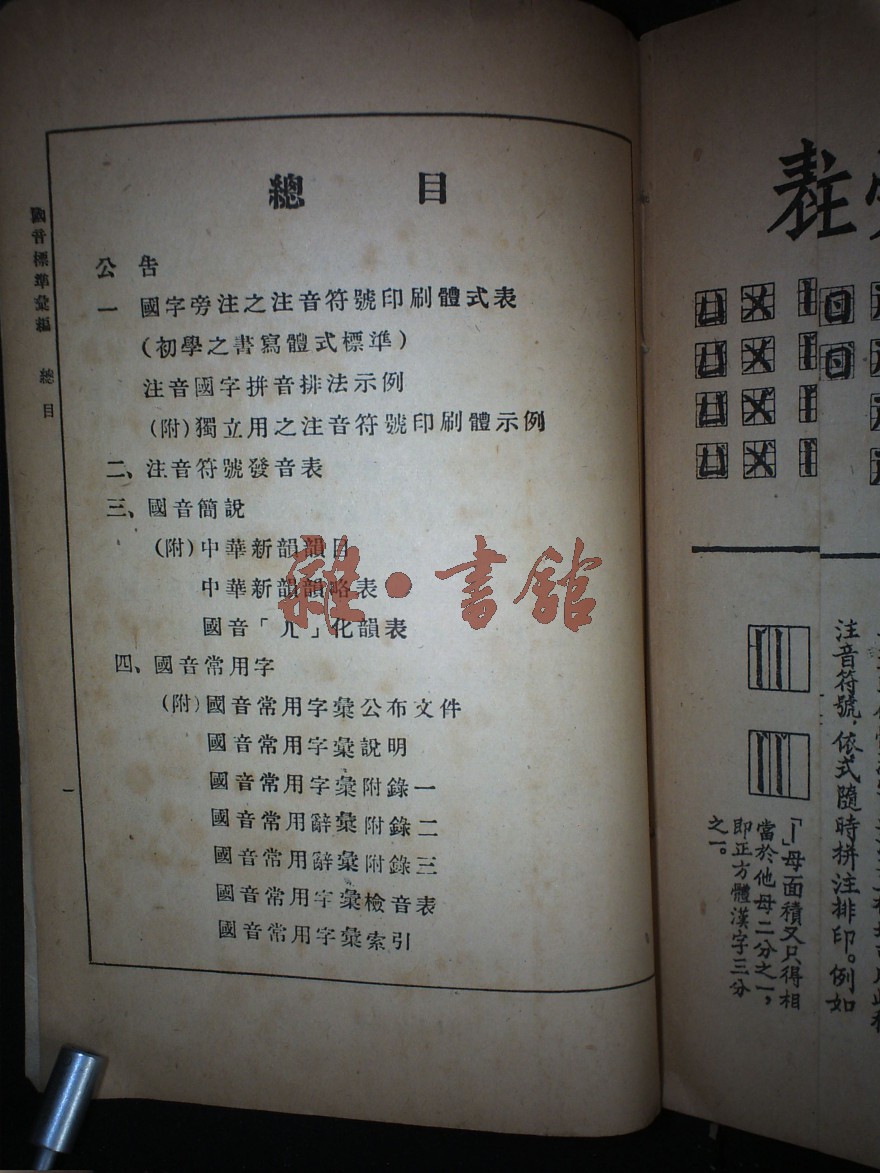 國音標準彙編 總目
總目
公告
一 國字旁注之注音符號印刷體式表
(初學之書寫體式標準)
注音國字拼音排法示例
(附)獨立用之注音符號印刷體示例
二、注音符號發音表
三、國音簡說
(附)中華新韻韻目
中華新韻韻略表
國音「ㄦ」化韻表
四、國音常用字
(附)國音常用字彙公布文件
國音常用字彙說明
國音常用字彙附錄一
國音常用辭彙附錄二
國音常用辭彙附錄三
國音常用字彙檢音表
國音常用字彙索引
一
雜·書館
表
注音符號,依式隨時拼注排印。例如
「ㄧ」母面積又只得相
當於他母二分之一,
即正方體漢字三分
之一。